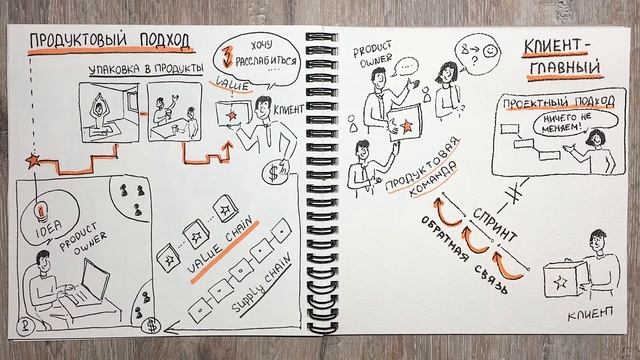 ПРОДУКТОВЫЙ ПОДХОД
УПАКОВКА В ПРОДУКТЫ
ХОЧУ
РАССЛАБИТЬСЯ
...
VALUE
КЛИЕНТ
$
IDEA
PRODUCT
OWNER
$
VALUE CHAIN
SUPPLY CHAIN
PRODUCT
OWNER
...
?
КЛИЕНТ-
ГЛАВНЫЙ
ПРОЕКТНЫЙ ПОДХОД
НИЧЕГО НЕ
МЕНЯЕМ!
ПРОДУКТОВАЯ
КОМАНДА
СПРИНТ
ОБРАТНАЯ СВЯЗЬ
КЛИЕНТ